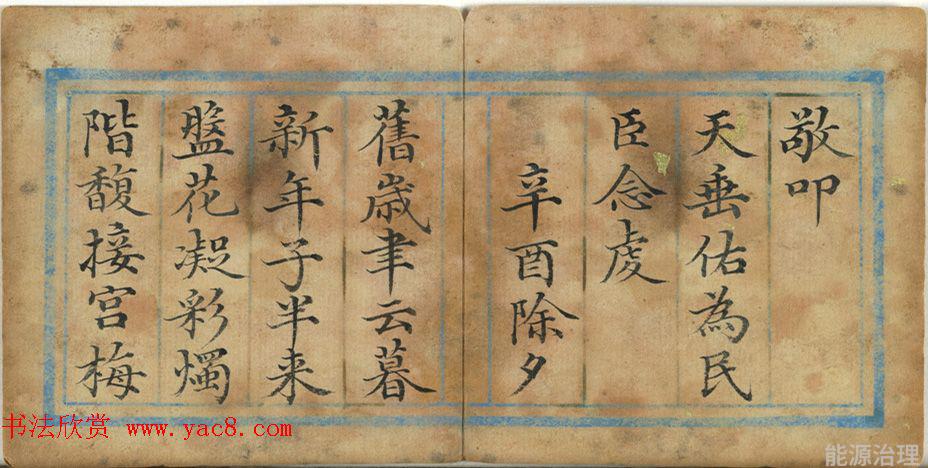 敬叩
天垂佑為民
臣念虔
辛酉除夕
舊歲聿云暮
新年子半来
盤花凝彩燭
階馥接宫梅
书法欣赏 www.yac8.com
能源治理